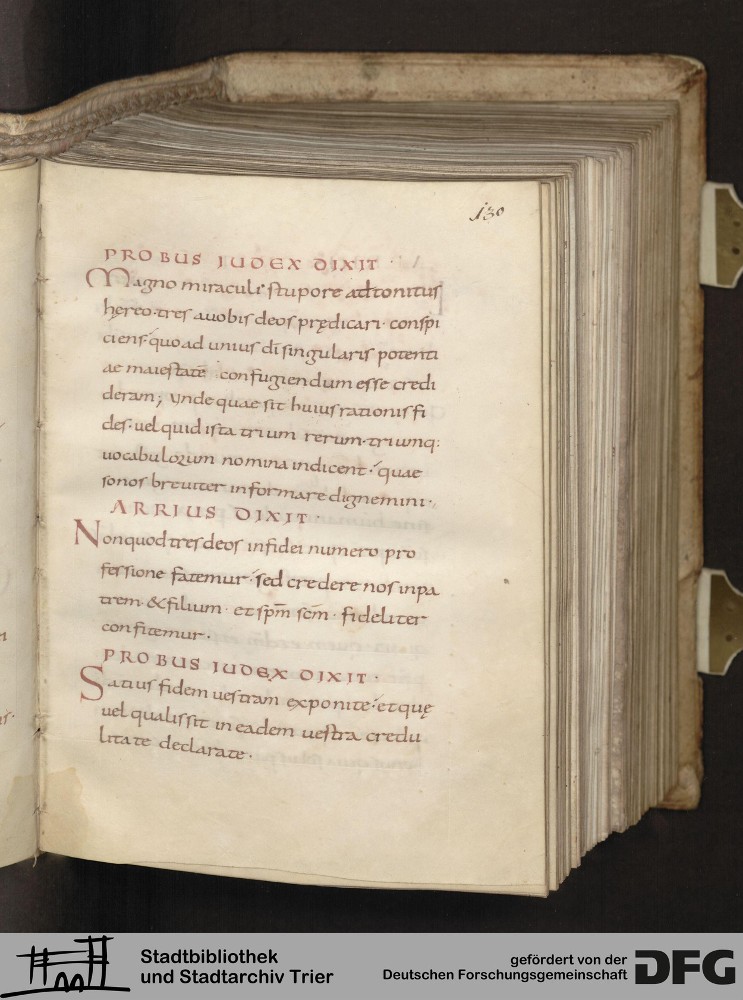 130
PROBUS IUDEX DIXIT ·
Magno miraculi stupore adtonitus
hęreo · tres auobis deos prędicari · conspi
ciens · quo ad unius di singularis potenti
ae maiestatē confugiendum esse credi
deram; Unde quae sit huius rationis fi
des · uel quid ista trium rerum · triumq:
uocabulorum nomina indicent · quae
so nos breuiter informare dignemini ·
ARRIUS DIXIT ·
Non quod tres deos infidei numero pro
fessione fatemur · sed credere nos in pa
trem · & filium · et spm̄ scm̄ · fideliter
confitemur ·
PROBUS IUDEX DIXIT ·
Satius fidem uestram exponite · et quę
uel qualis sit in eadem uestra credu
litate declarate ·
Stadtbibliothek
und Stadtarchiv Trier
gefördert von der
Deutschen Forschungsgemeinschaft
DFG